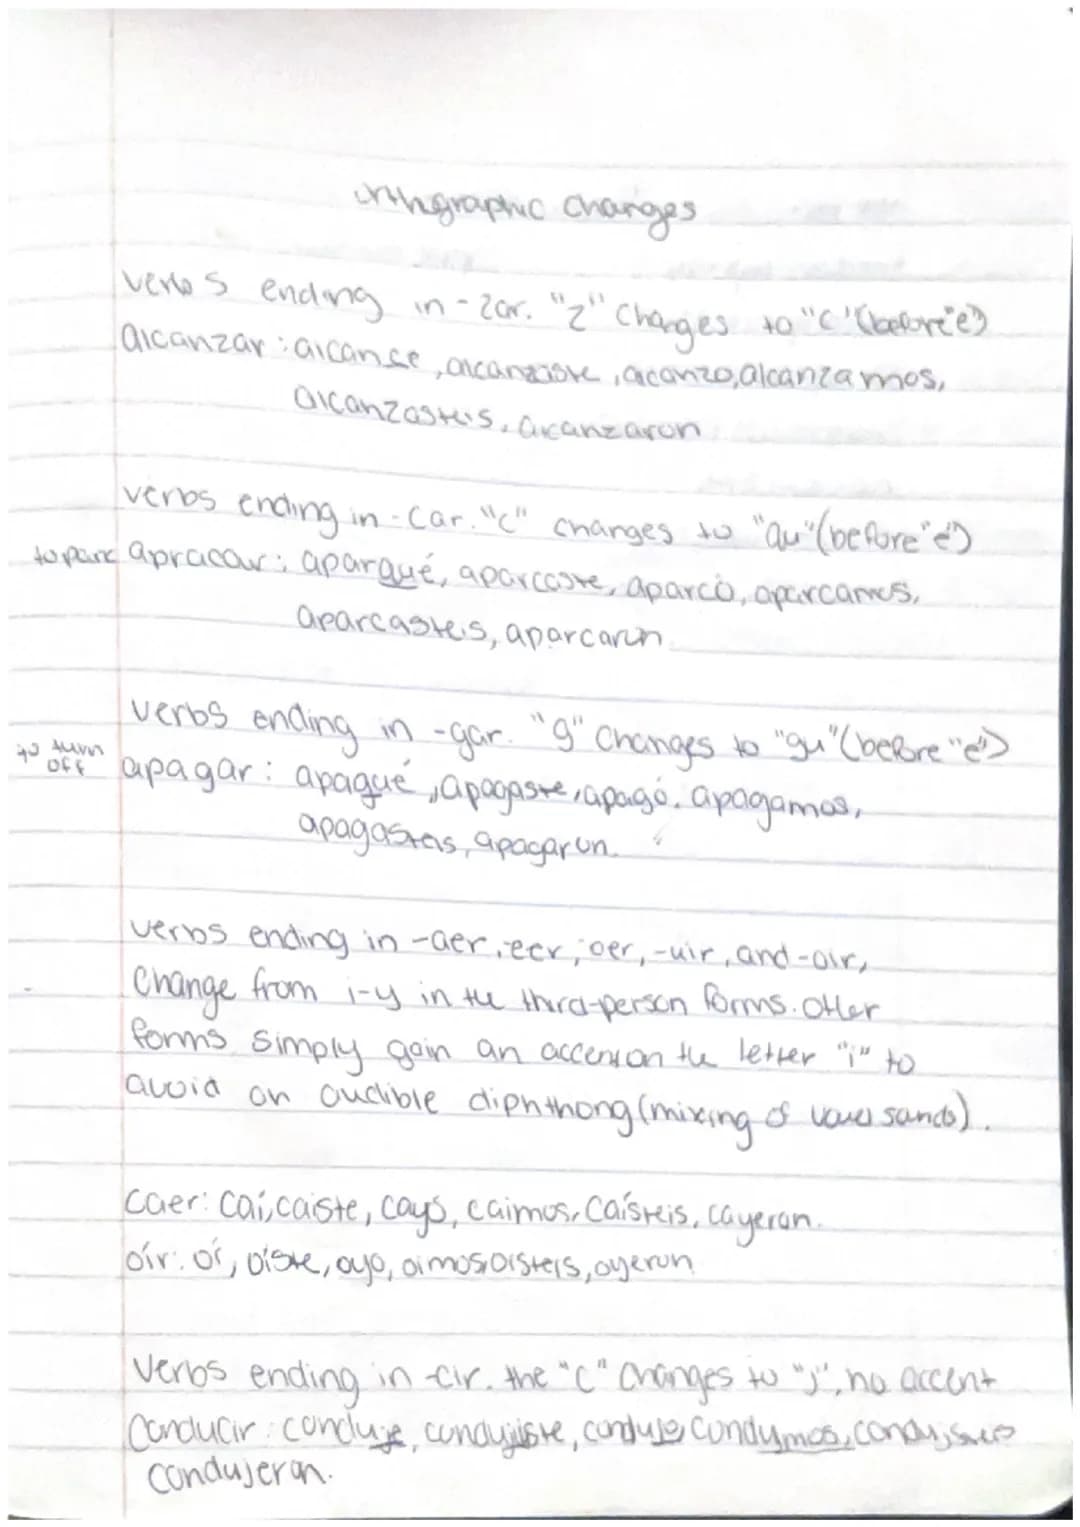 orthgraphic changes
verbs ending in -zar. "z" changes to "c" (before "e")
alcanzar: alcance, alcanzaste, acanzo, alcanzamos,
alcanzasteis, alcanzaron
verbs ending in -car. "c" changes to "qu" (before "e")
to park apracar: aparqué, aparcaste, aparcó, aparcamos,
aparcasteis, aparcaron.
verbs ending in -gar. "g" changes to "gu" (before "e")
to turn off
apagar: apagué, apagaste, apagó, apagamos,
apagasteis, apagaron.
verbs ending in -aer, -eer, -oer, -uir, and -oir,
Change from i-y in the third-person forms. Other
forms simply gain an accent on the letter "i" to
avoid an audible diphthong (mixing of vowel sands).
caer: caí, caiste, cayó, caimos, caísteis, cayeron.
oír: oí, oíste, oyo, oimos, oisteis, oyeron
Verbs ending in -cir. the "c" changes to "j", no accent
Conducir: conduje, condujiste, condujo, condujmos, condujisteis
condujeron.